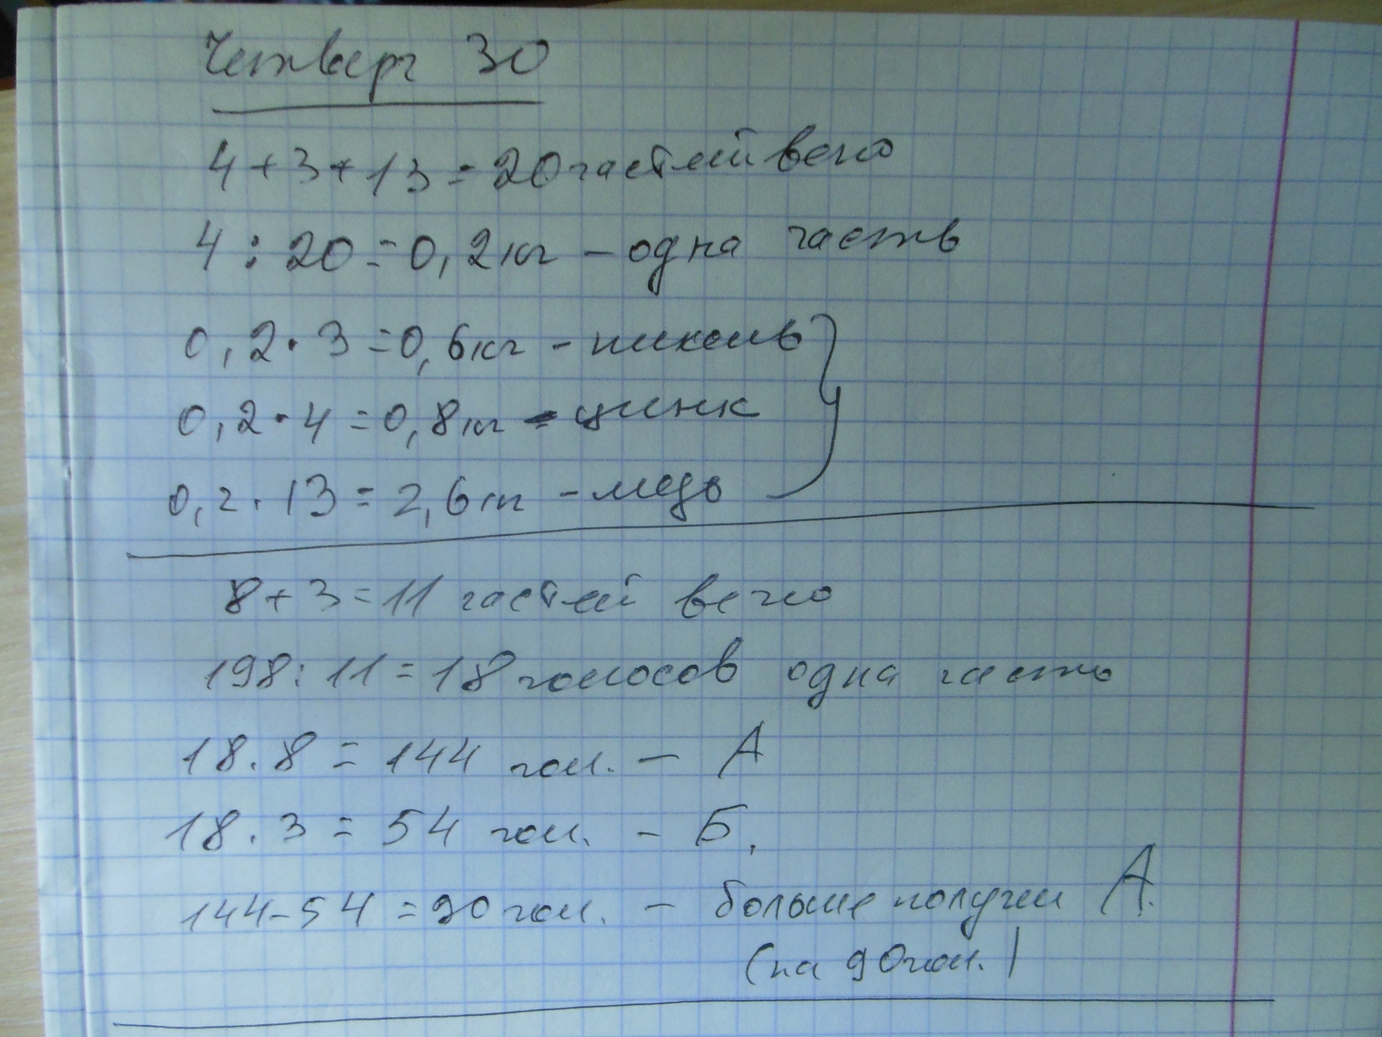 Четверг 30
4+3+13=20 частей всего
4:20=0,2кг – одна часть
0,2·3=0,6кг – никель
0,2·4=0,8кг – цинк
0,2·13=2,6кг – медь
8+3=11 частей всего
198:11=18 голосов одна часть
18·8=144 гол. – А
18·3=54 гол. – Б.
144-54=90 гол. – больше получил А.
(на 90 гол.)